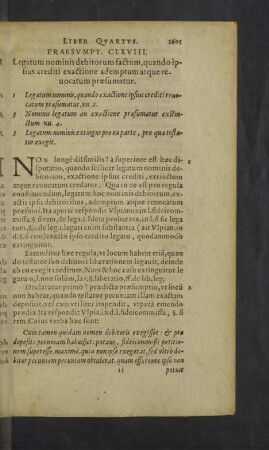 LIBER QVARTVS. 2605
PRAESVMPT. CLXVIII.
Legatum nominis debitorum factum, quando ip
sius crediti exactione ademptum atque re
uocatum præsumatur.
1 Legatum nominis, quando exactione ipsius crediti reuo
catum præsumatur. nu. 2.
Nominis legatum an exactione præsumatur extin
ctum nu. 4.
Legatum nominis extingui pro ea parte, pro qua testa
tor exegit.
NON longè dissimilis à superiore est hæc di
sputatio, quando scilicet legatum nominis de
bitorum, exactione ipsius crediti, extinctum
atque reuocatum credatur. Qua in re est pro regula
constituendum, legatum hoc nominis debitoris, ex
actis ipsis debitoribus, ademptum atque reuocatum
præsumi, Ita aperte respondit Vlpianus in l. fideicom
missa. §. si rem, de lega. 3.
exactio ipso credito legato, quodammodo
extinguitur.
Extenditur hæc regula, vt locum habeat etiã, quan
do testator suo debitori liberationem legauit, deinde
ab eo exegit creditum. Nam & hoc casu extinguitur le
gatum,
Declaratur primò prædicta præsumptio, vt locũ
non habeat, quando testator pecuniam illam exactam
deposuit, vel eam vtiliter impendit,
do perdita. Ita respondit Vlpian. in d. l. fideicommissa, §. si
rem. Cuius verba hæc sunt:
Cum tamen quidam nomen debitoris exegisset: & pro
deposito pecuniam habuisset: putaui, fideicommissi petitio
nem superesse maximè quia non ipse exegerat, sed vltro de
bitor pecuniam obtulerat. quam offerente ipso non
ii potuit